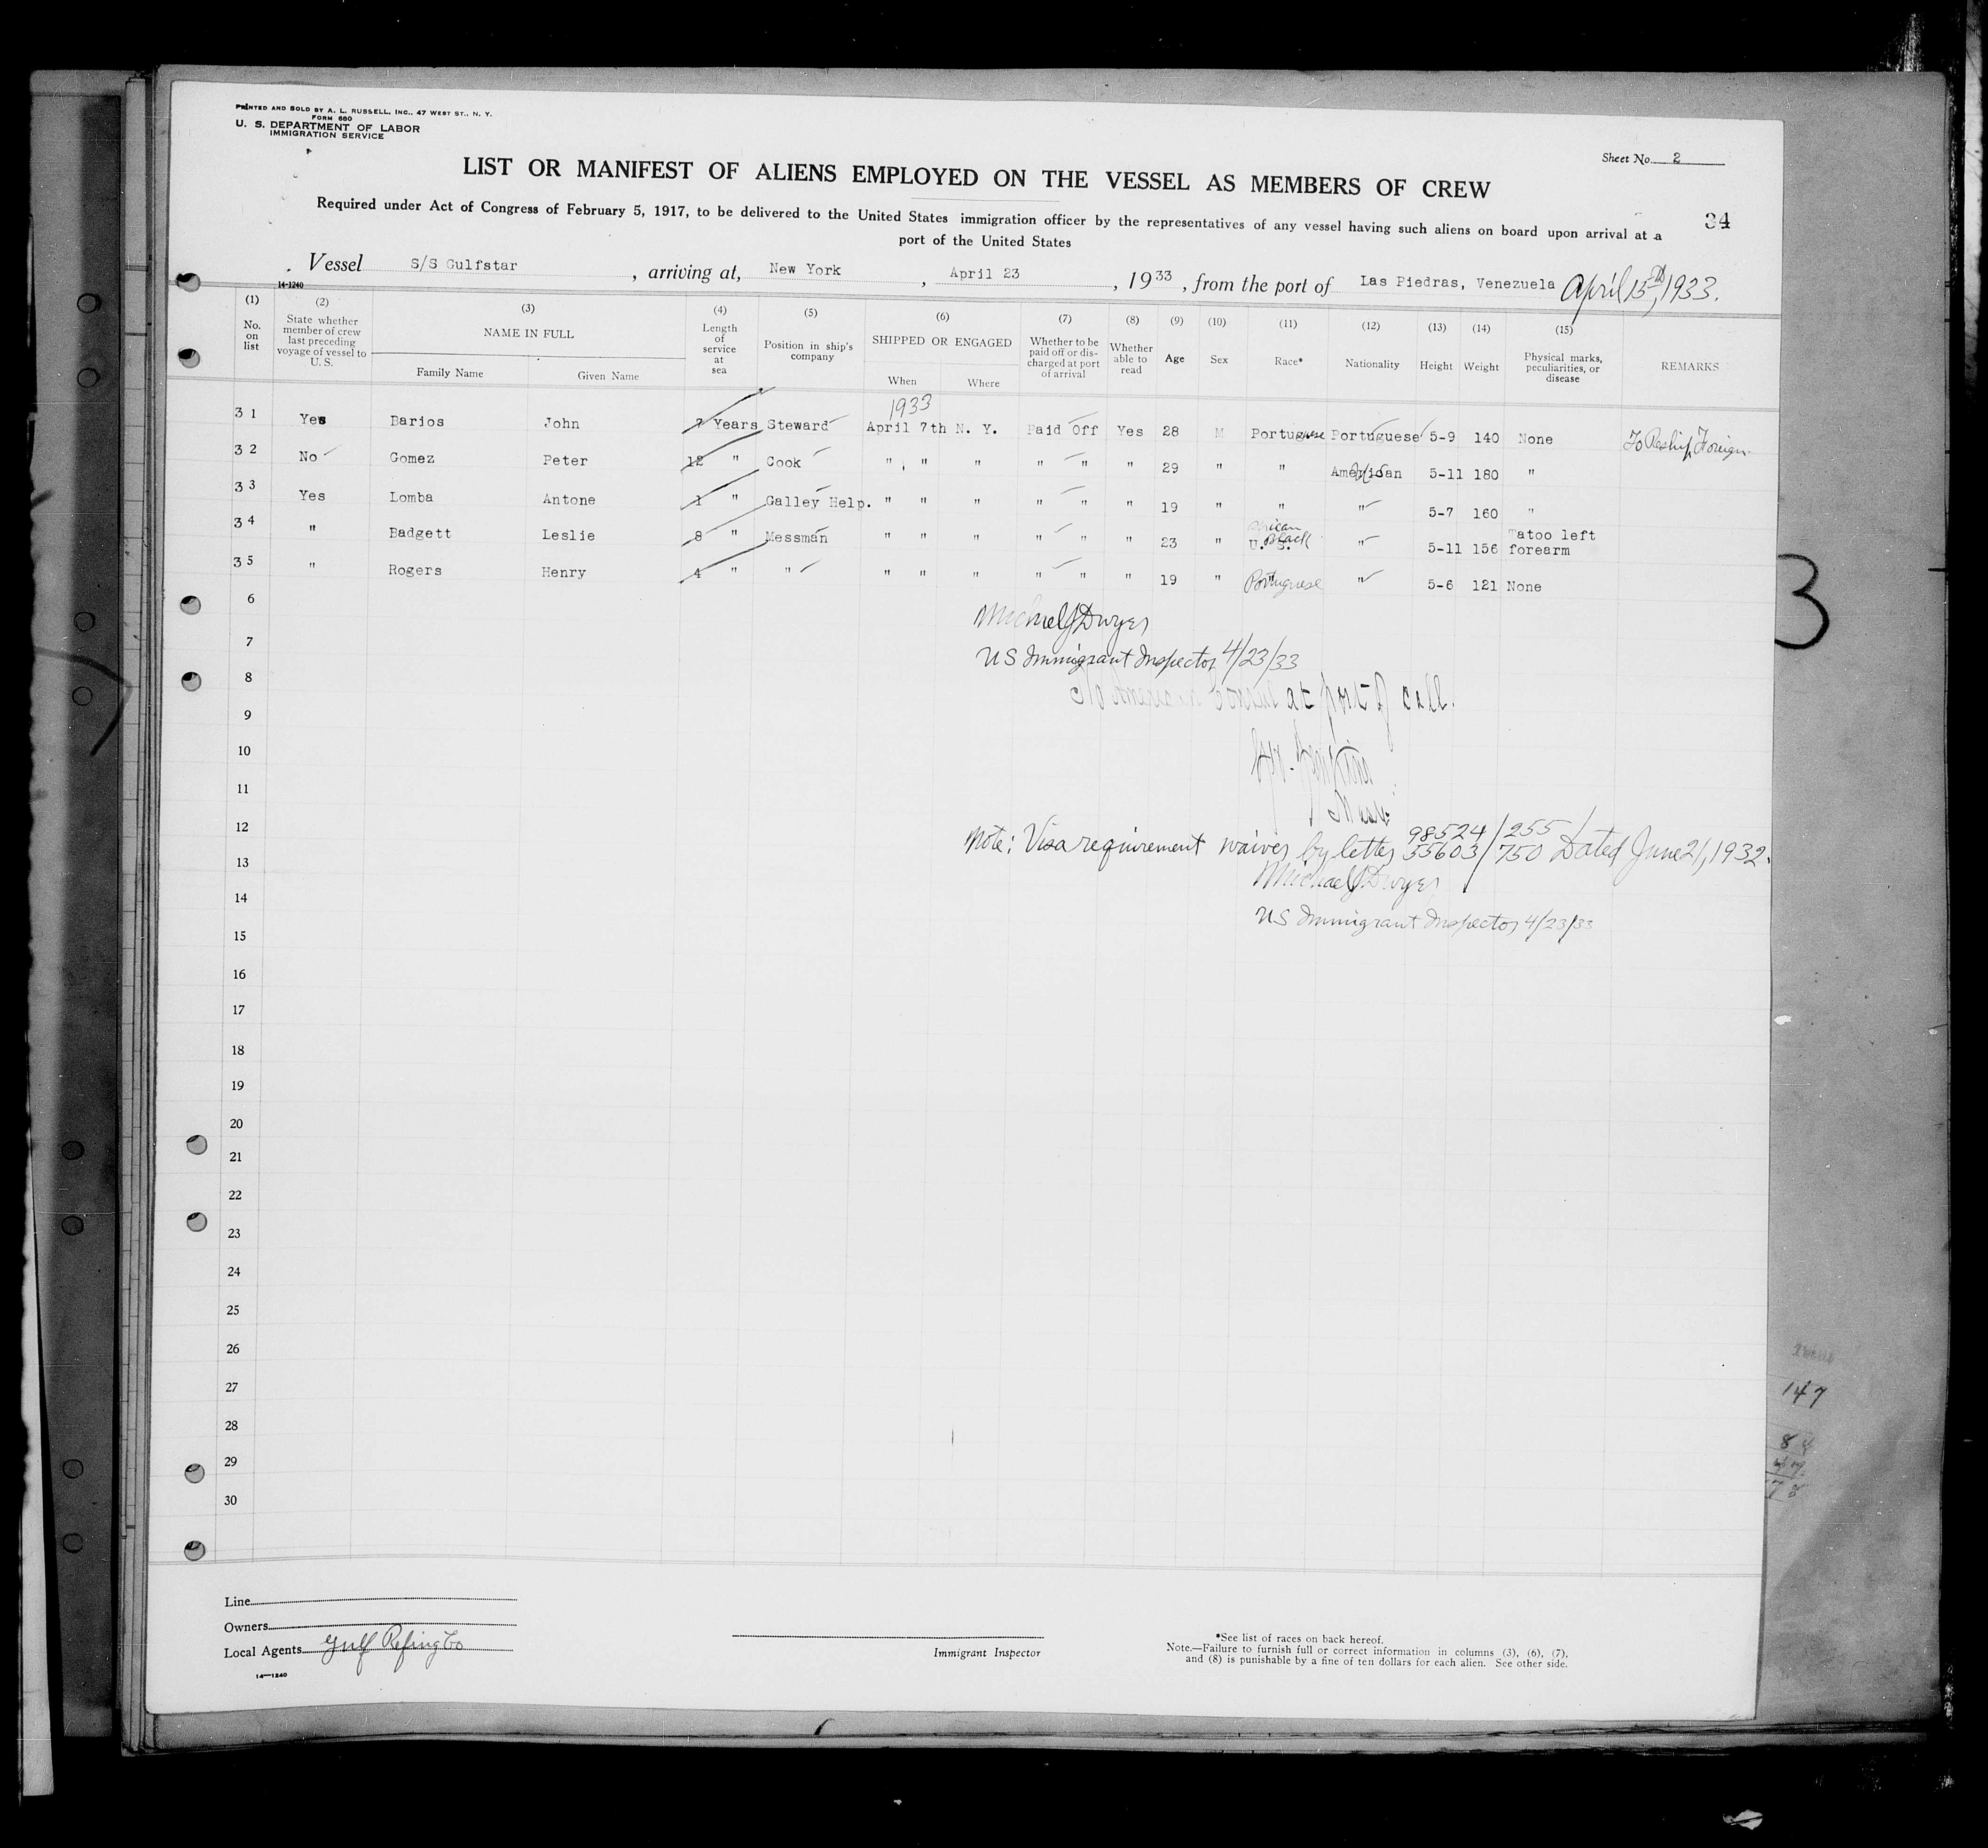 PRINTED AND SOLD BY A. L. RUSSELL, INC., 47 WEST ST., N. Y.
FORM 680
U. S. DEPARTMENT OF LABOR
IMMIGRATION SERVICE
Sheet No. 2
LIST OR MANIFEST OF ALIENS EMPLOYED ON THE VESSEL AS MEMBERS OF CREW
Required under Act of Congress of February 5, 1917, to be delivered to the United States immigration officer by the representatives of any vessel having such aliens on board upon arrival at a
port of the United States
34
Vessel S/S Gulfstar , arriving at, New York , April 23 , 1933 , from the port of Las Piedras, Venezuela April 15th, 1933.
14-1240
(1) (2) (3) (4) (5) (6) (7) (8) (9) (10) (11) (12) (13) (14) (15)
No. on list State whether member of crew last preceding voyage of vessel to U. S. NAME IN FULL Family Name Given Name Length of service at sea Position in ship's company SHIPPED OR ENGAGED When Where Whether to be paid off or discharged at port of arrival Whether able to read Age Sex Race* Nationality Height Weight Physical marks, peculiarities, or disease REMARKS
1933
31 Yes Barios John 7 Years Steward April 7th N. Y. Paid Off Yes 28 M Portuguese Portuguese 5-9 140 None To Reship Foreign
32 No Gomez Peter 12 " Cook " " " " " " 29 " " American 5-11 180 "
33 Yes Lomba Antone 1 " Galley Help. " " " " " " 19 " " " 5-7 160 "
34 " Badgett Leslie 8 " Messman " " " " " " 23 " U. S. African Black " 5-11 156 Tatoo left forearm
35 " Rogers Henry 4 " " " " " " " " 19 " Portuguese " 5-6 121 None
6
Michael J Dwyer
7
US Immigrant Inspector 4/23/33
8
No American Consul at port of call.
9
10
11
Mast.
12
Note: Visa requirement waived by letter 98524/255 55603/750 Dated June 21, 1932.
13
Michael J Dwyer
14
US Immigrant Inspector 4/23/33
15
16
17
18
19
20
21
22
23
24
25
26
27
28
29
30
3
147
Line
Owners
Local Agents Gulf Refing Co
14—1240
Immigrant Inspector
*See list of races on back hereof.
Note.—Failure to furnish full or correct information in columns (3), (6), (7),
and (8) is punishable by a fine of ten dollars for each alien. See other side.